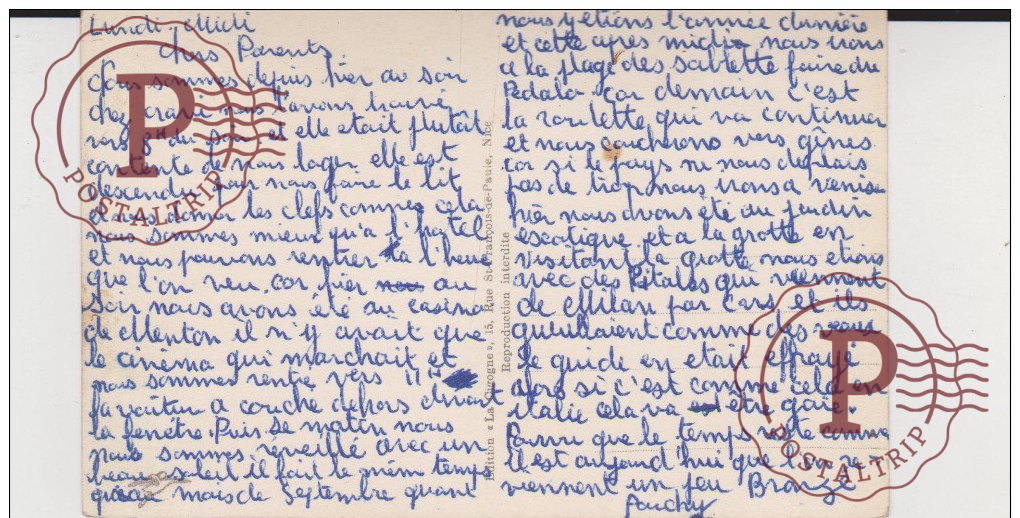 Lundi Midi
chers Parents
Nous sommes depuis hier au soir
chez nous l'avons trouvé
vers 8H du soir et elle etait plutôt
contente de nous loger elle est
descendu pour nous faire le lit
et nous donner les clefs comme cela
nous sommes mieux qu'a l'hotel
et nous pouvons rentrer a l'heure
que l'on veu. car hier au
soir nous avons été au casino
de Menton il n'y avait que
le cinéma qui marchait et
nous sommes rentré vers 11H
la voiture a couché dehors devant
la fenêtre. Puis se matin nous
nous sommes réveillé avec un
beau soleil il fait le même temps
qu'au mois de Septembre quant
nous y etions l'année dernière
et cette apres midi nous irons
a la plage des Sablette faire du
Pedalo car demain c'est
la roulette qui va continuer
et nous coucherons vers gênes
car si le pays ne nous deplais
pas de trop nous irons a venise
hier nous avons été au jardin
escotique et a la grotte en
visitant la grotte nous etions
avec des Itales qui viennent
de Milan par cars et ils
gueullaient comme des veau
le guide en etait effrayé
alors si c'est comme cela en
italie cela va être gaie.
Pourvu que le temps reste comme
il est aujourd'hui que l'on re-
viennent un peu Bronzé
Edition « La Cigogne », 15, Rue St-François-de-Paule, Nice
Reproduction interdite
P
POSTALTRIP
P
POSTALTRIP